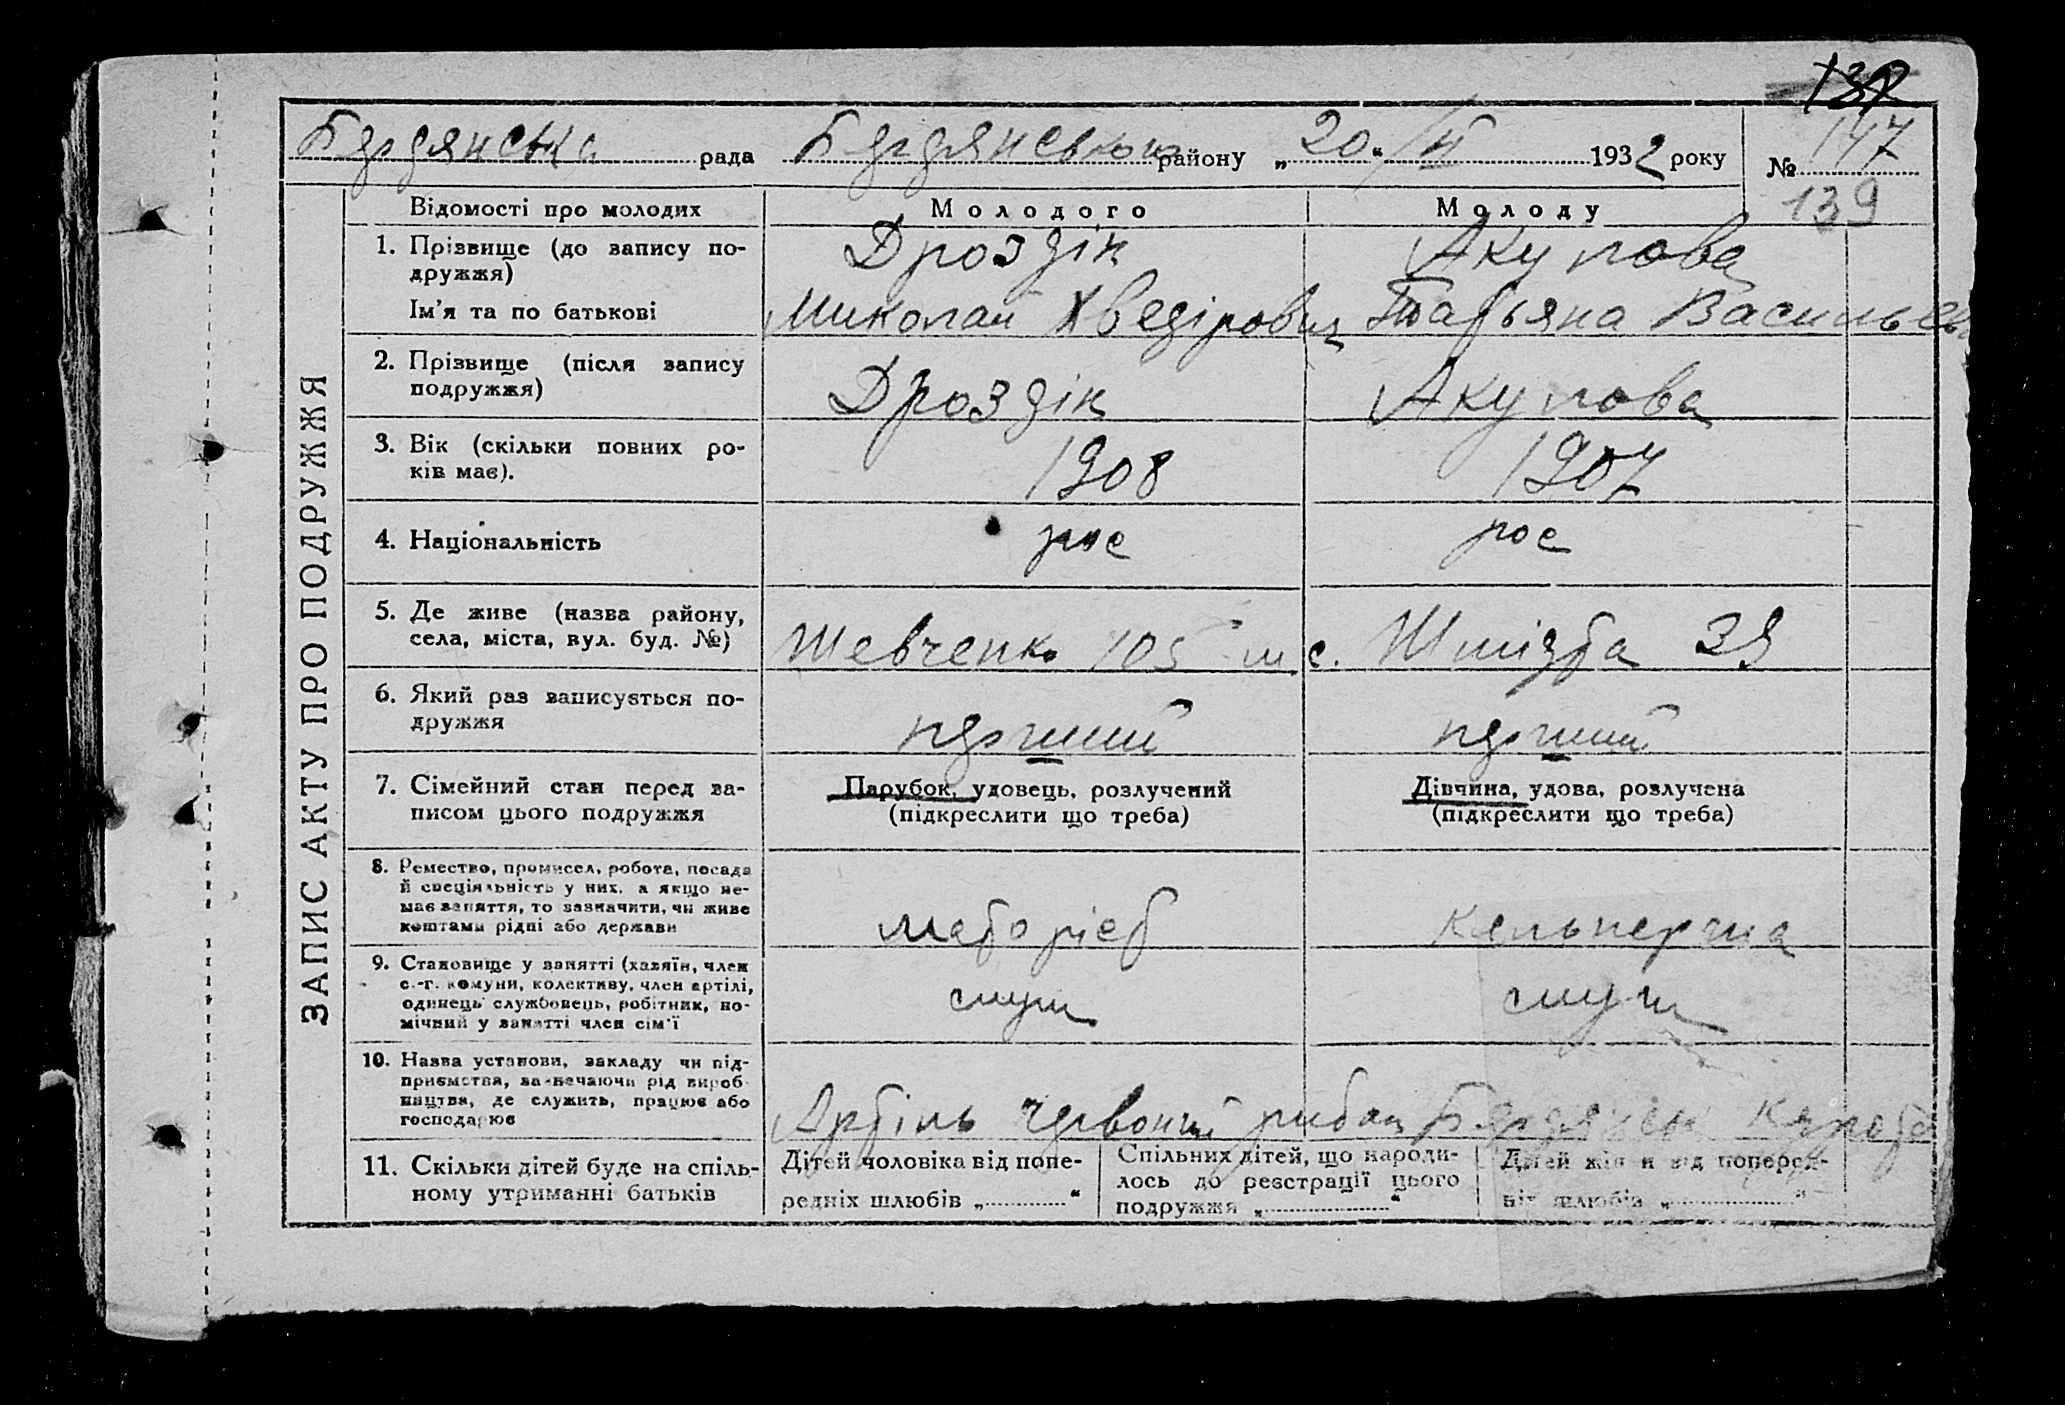 132
Бердянська рада Бердянського району „20“ / II 1932 року № 147
139
ЗАПИС АКТУ ПРО ПОДРУЖЖЯ
Відомості про молодих
Молодого
Молоду
1. Прізвище (до запису по-
дружжя)
Дроздік
Акулова
Ім'я та по батькові
Миколай Хведірович
Татьяна Васильев
2. Прізвище (після запису
подружжя)
Дроздік
Акулова
3. Вік (скільки повних ро-
ків має).
1908
1907
4. Національність
рос
рос
5. Де живе (назва району,
села, міста, вул. буд. №)
Шевченко 105
Шмідта 39
6. Який раз записується по-
дружжя
перший
перший
7. Сімейний стан перед за-
писом цього подружжя
Парубок, удовець, розлучений
(підкреслити що треба)
Дівчина, удова, розлучена
(підкреслити що треба)
8. Ремество, промисел, робота, посада
й спеціяльність у них, а якщо не-
має заняття, то зазначити, чи живе
коштами рідні або держави
кельнерша
9. Становище у занятті (хазяїн, член
с.-г. комуни, колективу, член артілі,
одинець службовець, робітник, по-
мічний у занятті член сім'ї
служ
служ
10. Назва установи, закладу чи під-
приємства, зазначаючи рід вироб-
ництва, де служить, працює або
господарює
Артіль червоний рибак
Бердянськ Курорт
11. Скільки дітей буде на спіль-
ному утриманні батьків
Дітей чоловіка від попе-
редніх шлюбів „ “
Спільних дітей, що народи-
лось до реєстрації цього
подружжя „ “
Дітей жінки від поперед-
ніх шлюбів „ “